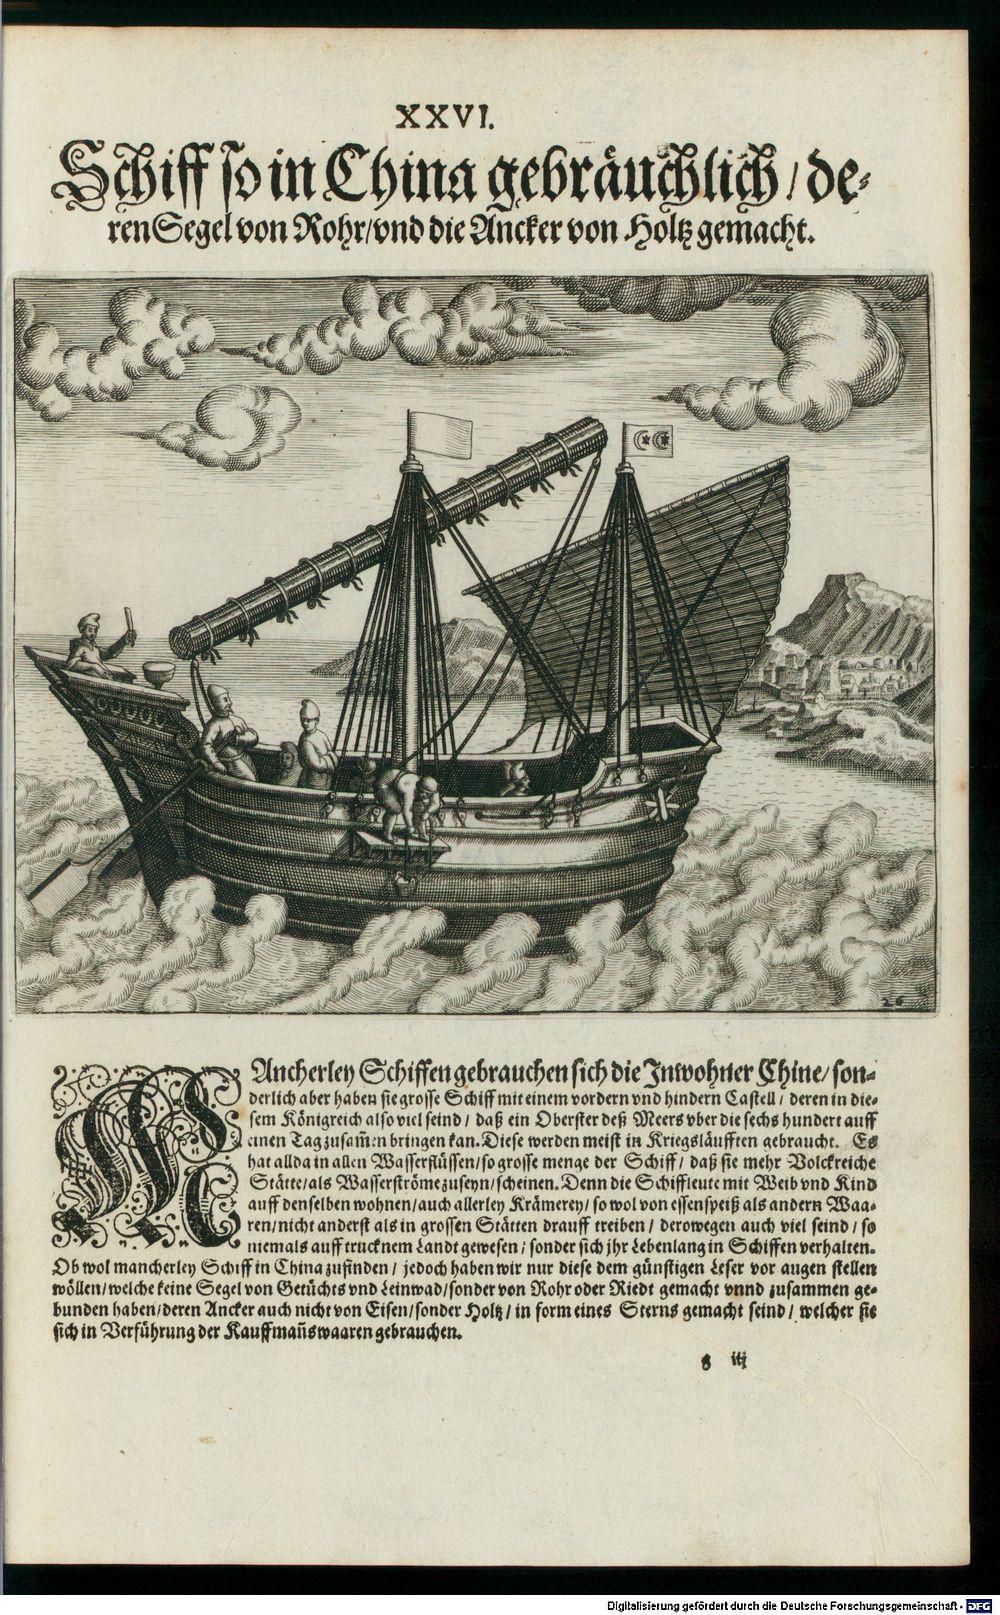 XXVI.
Schiff so in China gebräuchlich / de-
ren Segel von Rohr / vnd die Ancker von Holtz gemacht.
26
MAncherley Schiffen gebrauchen sich die Inwohner Chine / son-
derlich aber haben sie grosse Schiff mit einem vordern vnd hindern Castell / deren in die-
sem Königreich also viel seind / daß ein Oberster deß Meers vber die sechs hundert auff
einen Tag zusam̃en bringen kan. Diese werden meist in Kriegsläufften gebraucht. Es
hat allda in allen Wasserflüssen / so grosse menge der Schiff / daß sie mehr Volckreiche
Stätte / als Wasserströme zu seyn / scheinen. Denn die Schiffleute mit Weib vnd Kind
auff denselben wohnen / auch allerley Krämerey / so wol von essenspeiß als andern Waa-
ren / nicht anderst als in grossen Stätten drauff treiben / derowegen auch viel seind / so
niemals auff trucknem Landt gewesen / sonder sich jhr Lebenlang in Schiffen verhalten.
Ob wol mancherley Schiff in China zufinden / jedoch haben wir nur diese dem günstigen Leser vor augen stellen
wöllen / welche keine Segel von Getüchts vnd Leinwad / sonder von Rohr oder Riedt gemacht vnnd zusammen ge-
bunden haben / deren Ancker auch nicht von Eisen / sonder Holtz / in form eines Sterns gemacht seind / welcher sie
sich in Verführung der Kauffmañswaaren gebrauchen.
g iij
Digitalisierung gefördert durch die Deutsche Forschungsgemeinschaft - DFG